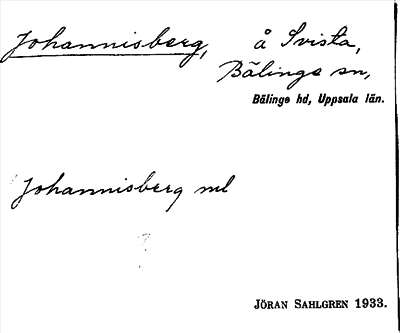 Johannisberg, å Svista,
Bälinge sn,
Bälinge hd, Uppsala län.
Johannisberg ml
JÖRAN SAHLGREN 1933.